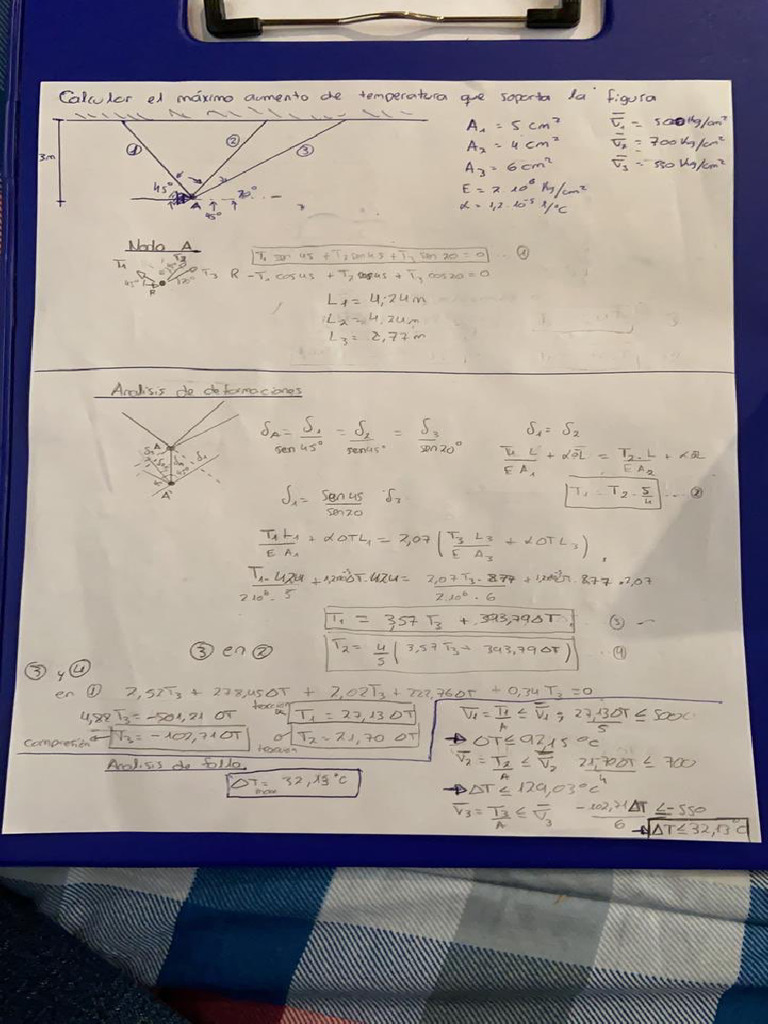 Calcular el máximo aumento de temperatura que soporta la figura
A₁ = 5 cm²
A₂ = 4 cm²
A₃ = 6 cm²
E = 2 10⁶ Kg/cm²
α = 1,2 · 10⁻⁵ 1/°C
σ̄₁ = 500 Kg/cm²
σ̄₂ = 700 Kg/cm²
σ̄₃ = 550 Kg/cm²
3m
① ② ③
45° A 20°
45°
Nodo A
T₁ T₂ T₃
45° R 20°
T₁ sen 45 + T₂ sen 45 + T₃ sen 20 = 0 ... ①
R - T₁ cos 45 + T₂ cos 45 + T₃ cos 20 = 0
L₁ = 4,24 m
L₂ = 4,24 m
L₃ = 8,77 m
Analisis de deformaciones
A
A'
δA = δ₁/sen 45° = δ₂/sen 45° = δ₃/sen 20°
δ₁ = δ₂
T₁ L/E A₁ + αΔL = T₂ L/E A₂ + αΔL
T₁ = T₂ · 5/4 ... ②
δ₁ = sen 45/sen 20 δ₃
T₁ L₁/E A₁ + α ΔT L₁ = 2,07 (T₃ L₃/E A₃ + α ΔT L₃).
T₁ · 4,24/2 10⁶ · 5 + 1,2·10⁻⁵ ΔT · 4,24 = 2,07 T₃ · 8,77/2 10⁶ · 6 + 1,2·10⁻⁵ ΔT · 8,77 · 2,07
T₁ = 3,57 T₃ + 393,79 ΔT ③
③ en ②
T₂ = 4/5 (3,57 T₃ + 393,79 ΔT) ④
③ y ④
en ① 2,52 T₃ + 278,45 ΔT + 2,02 T₃ + 222,76 ΔT + 0,34 T₃ = 0
4,88 T₃ = -501,21 ΔT
traccion T₁ = 27,13 ΔT
compresión T₃ = -102,71 ΔT
traccion T₂ = 21,70 ΔT
Analisis de fallo
ΔT max = 32,13 °C
σ₁ = T₁/A ≤ σ̄₁ ; 27,13 ΔT/5 ≤ 500
→ ΔT ≤ 92,15 °C
σ₂ = T₂/A ≤ σ̄₂ 21,70 ΔT/4 ≤ 700
→ ΔT ≤ 129,03 °C
σ₃ = T₃/A ≤ σ̄₃ -102,71 ΔT/6 ≤ -550
→ ΔT ≤ 32,13 °C